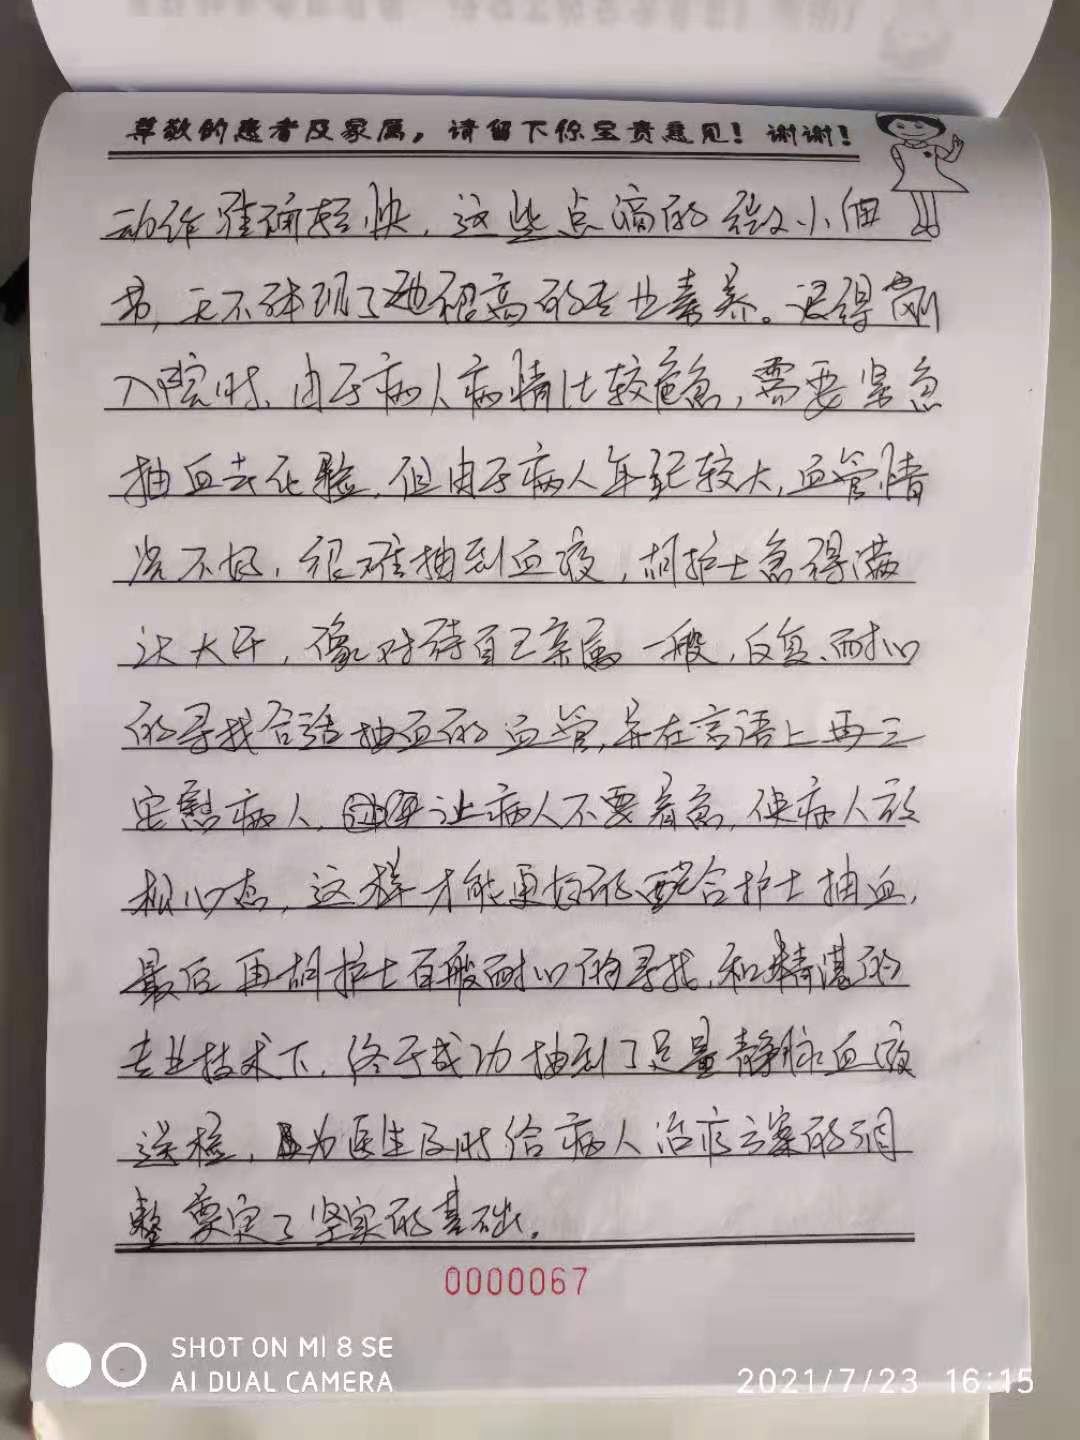 尊敬的患者及家属，请留下你宝贵意见！谢谢！
动作准确轻快，这些点滴的微小细
节，无不体现了她很高的专业素养。记得刚
入院时、由于病人病情比较危急，需要紧急
抽血去化验，但由于病人年纪较大，血管情
况不好，很难抽到血液，胡护士急得满
头大汗，像对待自己亲属一般，反复、耐心
的寻找合适抽血的血管，并在言语上再三
安慰病人，让病人不要着急，使病人放
松心态，这样才能更好的配合护士抽血，
最后再胡护士百般耐心的寻找，和精湛的
专业技术下，终于成功抽到了足量静脉血液
送检，为医生及时给病人治疗方案的调
整奠定了坚实的基础。
0000067
SHOT ON MI 8 SE
AI DUAL CAMERA
2021/7/23 16:15